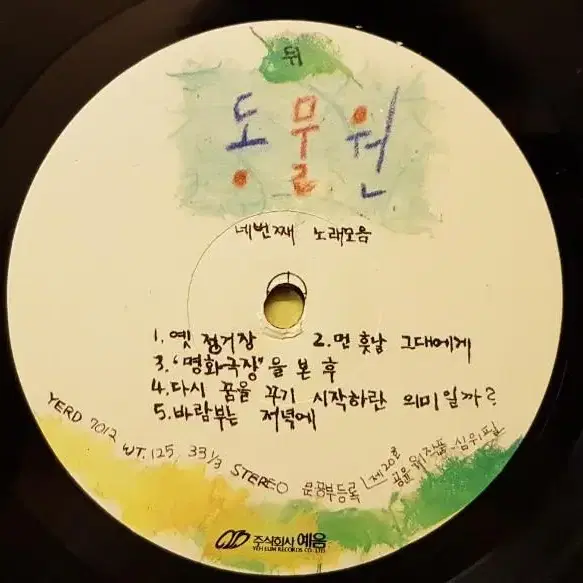 뒤
동물원
네번째 노래모음
1. 옛 정거장 2. 먼 훗날 그대에게
3. "명화극장"을 본 후
4. 다시 꿈을 꾸기 시작하란 의미일까?
5. 바람부는 저녁에
YERD 7012 WT. 125. 33 1/3 STEREO 문공부등록 제20호 공윤 심의필
주식회사 예음
YEH EUM RECORDS CO. LTD